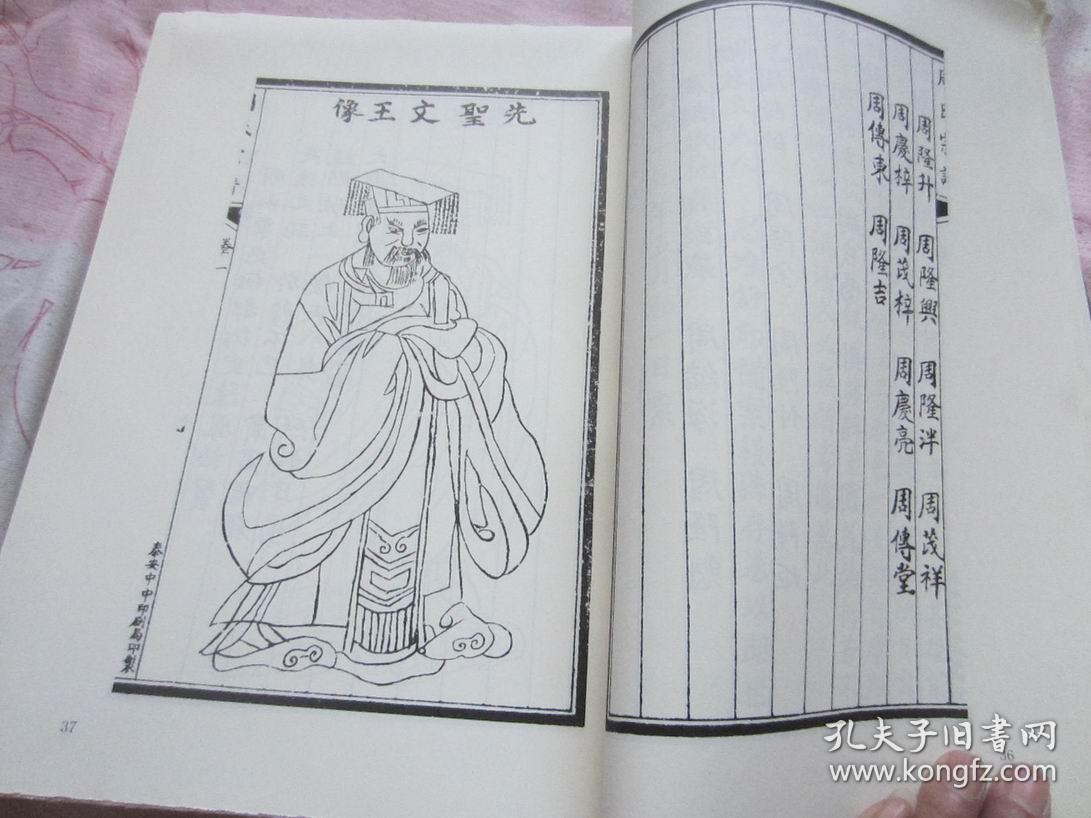 周氏宗譜
周隆升 周隆興 周隆泮 周茂祥
周慶梓 周茂梓 周慶亮 周傳堂
周傳東 周隆吉
36
先聖文王像
卷一
泰安中中印刷局印製
37
孔夫子旧书网
www.kongfz.com